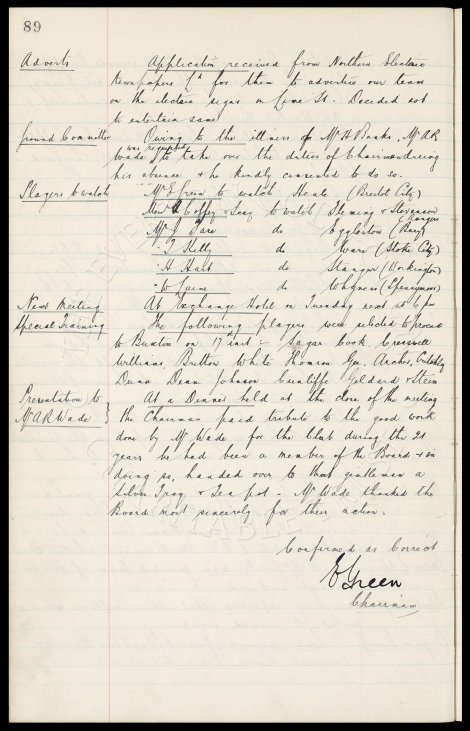 89
Adverts Application received from Northern Electric
Newspapers Ld for them to advertise our team
on the electric signs in Lime St. Decided not
to entertain same
Ground Committee Owing to the illness of Mr H Banks, Mr A R
Wade was requested to take over the duties of Chairman during
his absence & he kindly consented to do so.
Players to watch Mr E Green to watch Heale (Bristol City)
Messrs Coffey & Seay to watch Fleming & Stevenson
Mr J Sare do Eggleston (Bury) Rangers
" T Kelly do Ware (Stoke City)
" H Hart do Stanger (Workington)
" W Caine do (Spennymoor)
Next Meeting At Exchange Hotel on Tuesday next at 6 pm
Special Training The following players were selected to proceed
to Buxton on 17 inst :- Sagar Cook Cresswell
Williams Britton White Thomson Gee Archer Critchley
Dunn Dean Johnson Cunliffe Geldard & Stein
Presentation to At a Dinner held at the close of the meeting
Mr A R Wade } the Chairman paid tribute to the good work
done by Mr Wade for the Club during the 21
years he had been a member of the Board & in
doing so, handed over to that gentleman a
Silver Tray & Tea pot. Mr Wade thanked the
Board most sincerely for their action.
Confirmed as Correct
E Green
Chairman